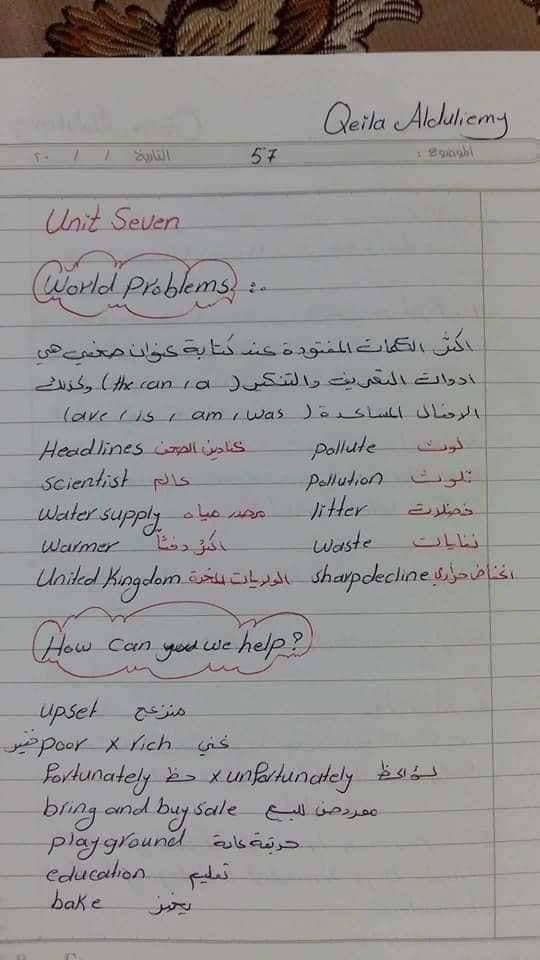 Qeila Alduliemy
الموضوع : 57 التاريخ / / ٢٠
Unit Seven
World Problems :.
اكثر الكلمات المفقودة عند كتابة عنوان صحفي هي
ادوات التعريف والتنكير (the, an, a) وكذلك
الافعال المساعدة (are, is, am, was)
Headlines عناوين الصحف pollute لوث
scientist عالم pollution تلوث
Water supply مصدر مياه litter فضلات
Warmer اكثر دفئاً waste نفايات
United Kingdom الولايات المتحدة sharp decline انخفاض حراري
How can we help?
upset منزعج
فقير poor x rich غني
fortunately حظ x unfortunately لسؤ الحظ
bring and buy sale معروض للبيع
playground حديقة عامة
education تعليم
bake يخبز